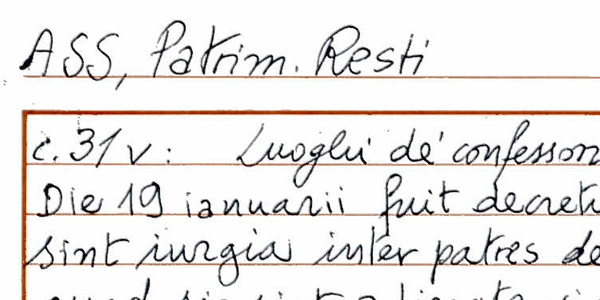 ASS, Patrim. Resti
c. 31 v: Luoghi de' confesson
Die 19 ianuarii fuit decret
sint iurgia inter patres de
quod si sint